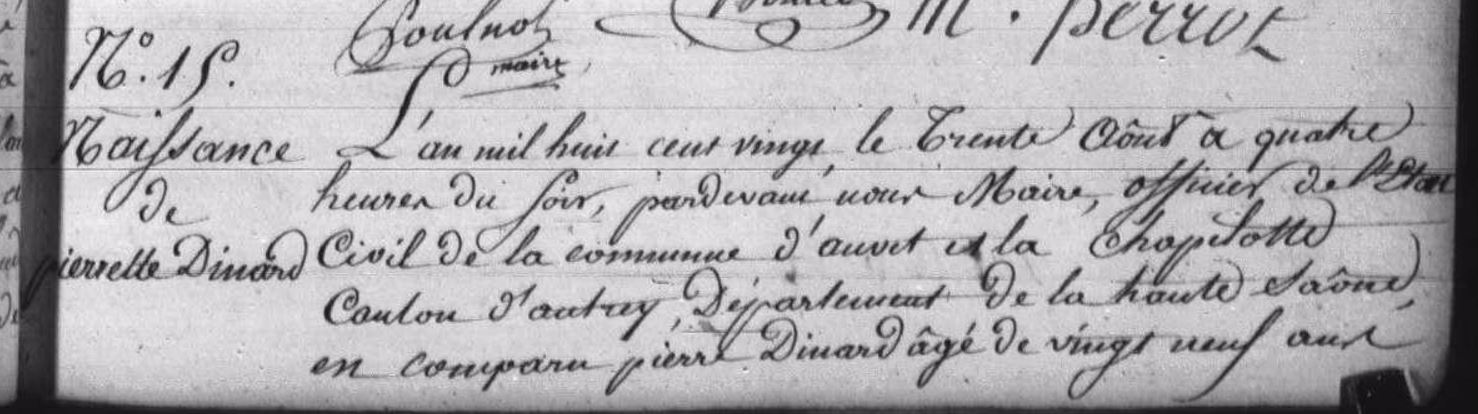 Poulnot M. perrot
maire
N.º 15.
Naissance
de
pierrette Dinard
L'an mil huit cent vingt, le Trente Août à quatre
heures du soir, pardevant nous Maire, officier de l'Etat
Civil de la commune d'auvet et la Chapelotte
Canton d'autrey, Département de la haute Saône,
en comparu pierre Dinard âgé de vingt neuf ans